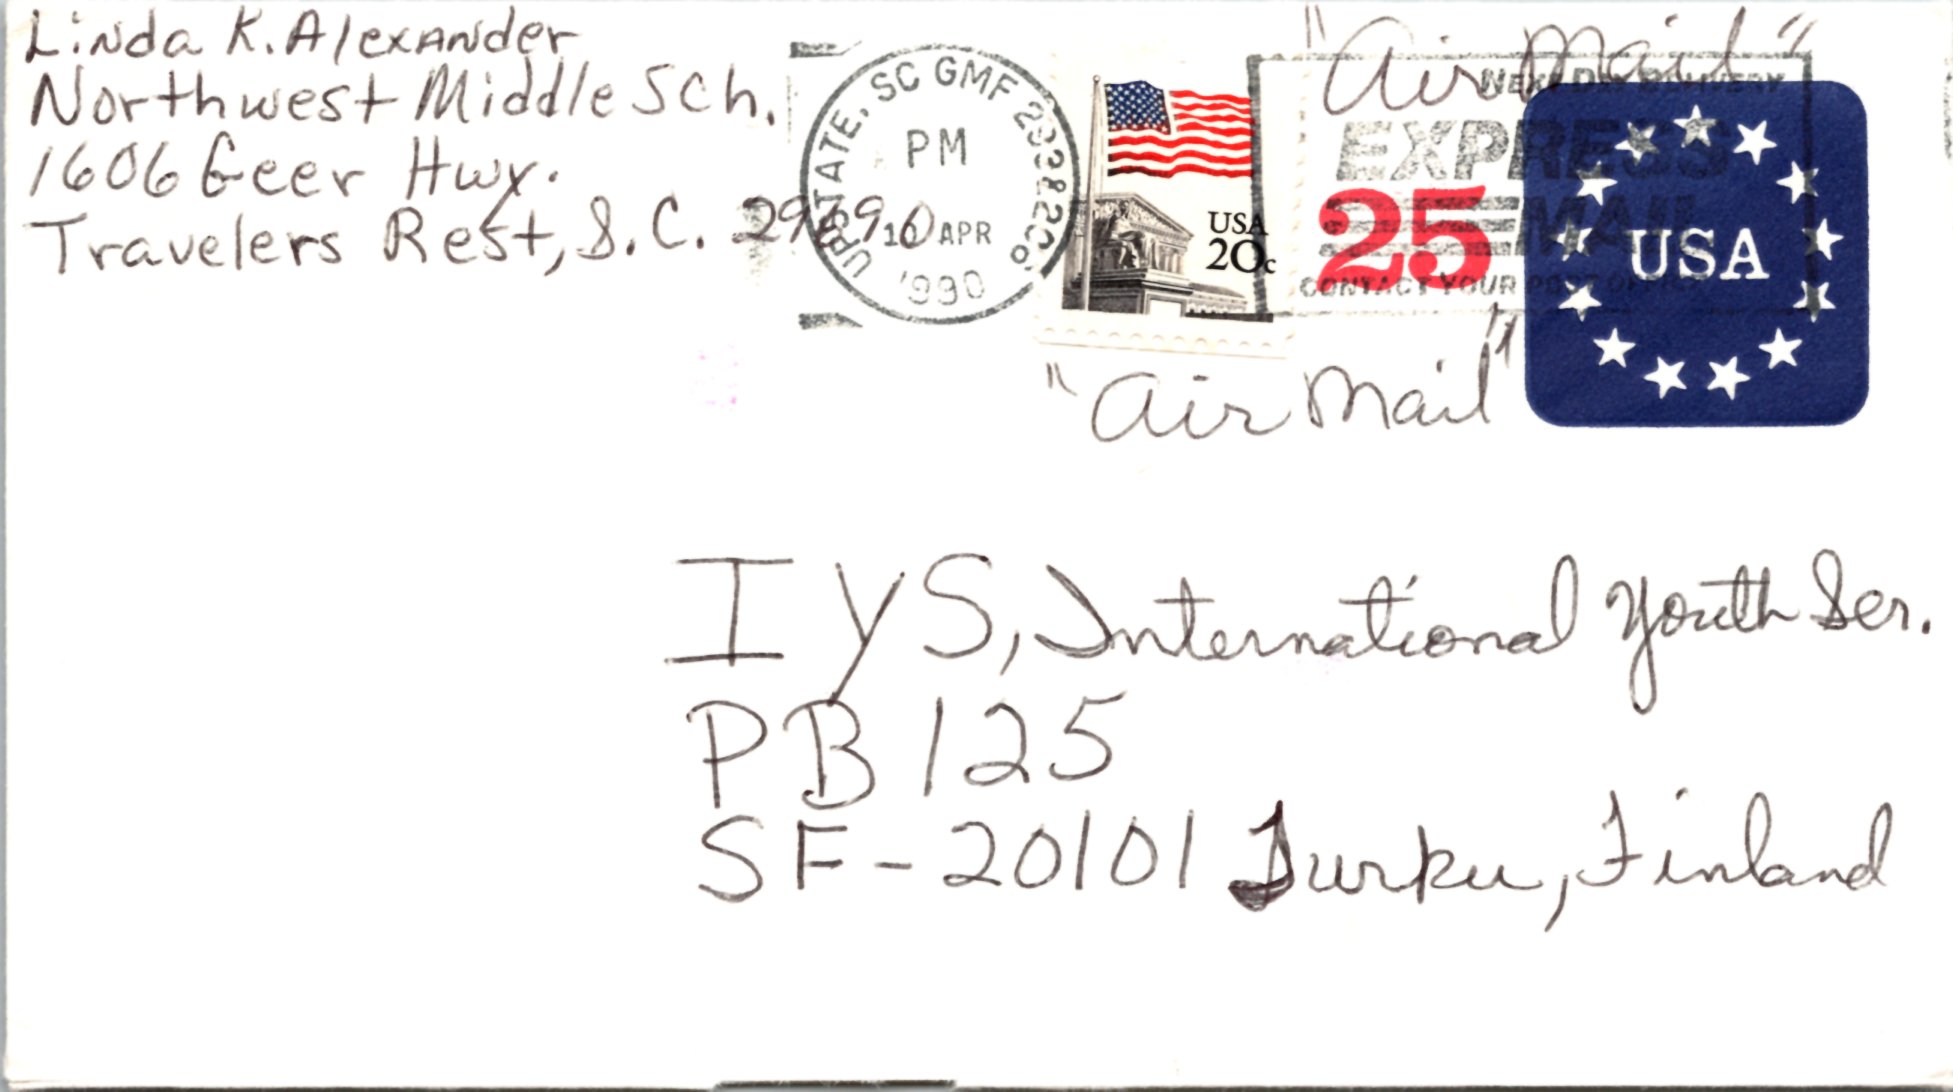 Linda K. Alexander
Northwest Middle Sch.
1606 Geer Hwy.
Travelers Rest, S.C. 29690
UPSTATE, SC GMF
PM
10 APR
1990
USA
20c
"Air Mail"
NEXT DAY DELIVERY
EXPRESS
MAIL
CONTACT YOUR POST OFFICE
25
USA
"Air Mail"
IYS, International Youth Ser.
PB 125
SF-20101 Turku, Finland